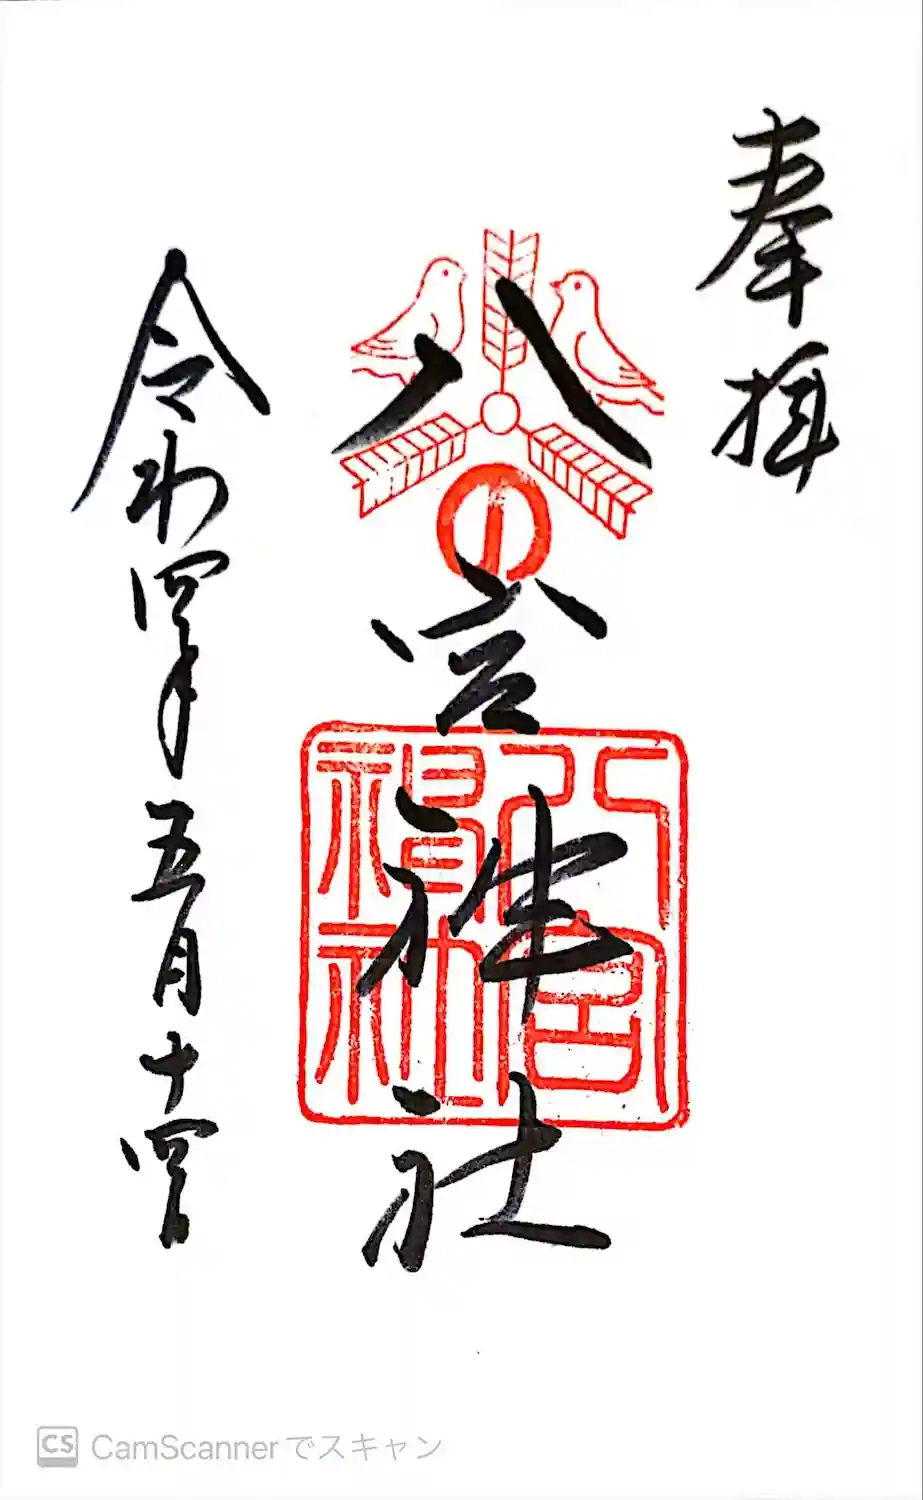 奉拝
八の宮神社
八宮神社
令和四年五月十四日
CS CamScannerでスキャン